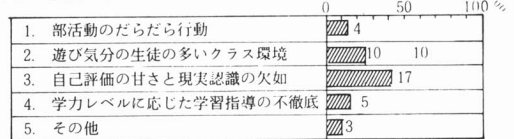 0 50 100%
1. 部活動のだらだら行動 4
2. 遊び気分の生徒の多いクラス環境 10 10
3. 自己評価の甘さと現実認識の欠如 17
4. 学力レベルに応じた学習指導の不徹底 5
5. その他 3